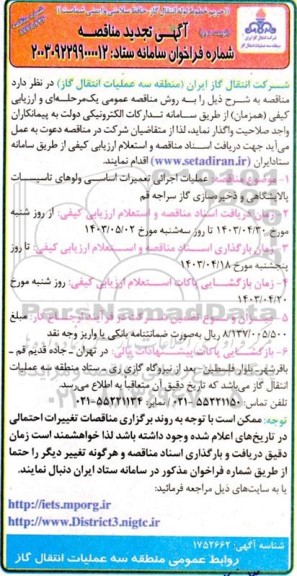 (حریم خطوط لوله انتقال گاز، حافظ سلامتی و ایمنی شماست)
آگهی تجدید مناقصه
شماره فراخوان سامانه ستاد: ۲۰۰۳۰۹۲۳۹۹۰۰۰۰۱۲
شرکت انتقال گاز ایران (منطقه سه عملیات انتقال گاز) در نظر دارد
مناقصه به شرح ذیل را به روش مناقصه عمومی یک‌مرحله‌ای و ارزیابی
کیفی (همزمان) از طریق سامانه تدارکات الکترونیکی دولت به پیمانکاران
واجد صلاحیت واگذار نماید، لذا از متقاضیان شرکت در مناقصه دعوت به عمل
می‌آید جهت دریافت اسناد مناقصه و استعلام ارزیابی کیفی از طریق سامانه
ستادایران (www.setadiran.ir) اقدام نمایند.
۱- موضوع مناقصه: عملیات اجرائی تعمیرات اساسی ولوهای تاسیسات
پالایشگاهی و ذخیره‌سازی گاز سراجه قم
۲- زمان دریافت اسناد مناقصه و استعلام ارزیابی کیفی: از روز شنبه
مورخ ۱۴۰۳/۰۴/۳۰ تا روز سه‌شنبه مورخ ۱۴۰۳/۰۵/۰۲
۳- زمان بارگذاری اسناد مناقصه و استعلام ارزیابی کیفی: تا روز
پنجشنبه مورخ ۱۴۰۳/۰۴/۱۸
۴- زمان بازگشایی پاکات استعلام ارزیابی کیفی: روز شنبه مورخ
۱۴۰۳/۰۴/۲۰
مبلغ
۸/۱۳۷/۰۰۵/۵۰۰ ریال به‌صورت ضمانتنامه بانکی یا واریز وجه نقد
۶- بازگشایی پاکات پیشنهادات مالی: در تهران - جاده قدیم قم -
باقرشهر - بلوار فلسطین - بعد از نیروگاه گازی ری - ستاد منطقه سه عملیات
انتقال گاز می‌باشد که تاریخ دقیق آن متعاقبا به اطلاع می‌رسد.
تلفن تماس: ۵۵۲۲۱۱۵۰-۰۲۱ نمابر: ۵۵۲۲۱۱۳۴-۰۲۱
توجه: ممکن است با توجه به روند برگزاری مناقصات تغییرات احتمالی
در تاریخ‌های اعلام شده وجود داشته باشد لذا خواهشمند است زمان
دقیق دریافت و بارگذاری اسناد مناقصه و هرگونه تغییر دیگر را حتما
از طریق شماره فراخوان مذکور در سامانه ستاد ایران دنبال نمایند.
یا به سایت‌های ذیل مراجعه فرمائید:
http://iets.mporg.ir
http://www.District3.nigtc.ir
شناسه آگهی: ۱۷۵۲۶۶۲
روابط عمومی منطقه سه عملیات انتقال گاز